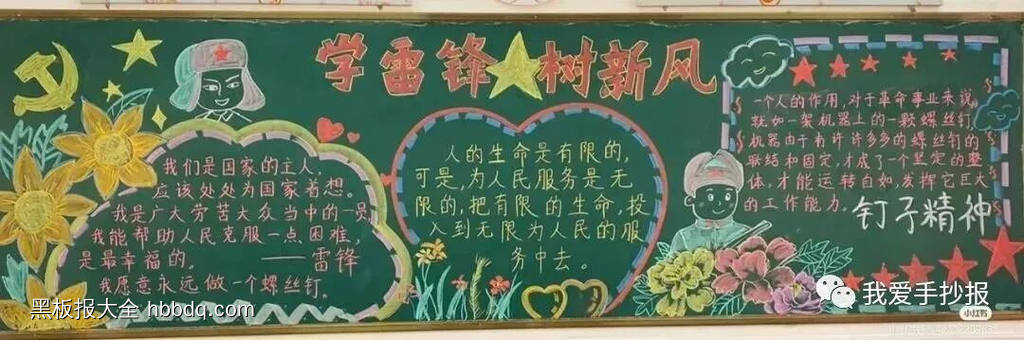 学雷锋树新风
我们是国家的主人,
应该处处为国家着想。
我是广大劳苦大众当中的一员
我能帮助人民克服一点困难,
是最幸福的。 ——雷锋
我愿意永远做一个螺丝钉。
人的生命是有限的,
可是,为人民服务是无
限的,把有限的生命,投
入到无限为人民的服
务中去。
一个人的作用,对于革命事业来说,
就如一架机器上的一颗螺丝钉
机器由于有许许多多的螺丝钉的
联结和固定,才成了一个坚定的整
体,才能运转自如,发挥它巨大
的工作能力。
钉子精神
黑板报大全 hbbdq.com
我爱手抄报
小红书